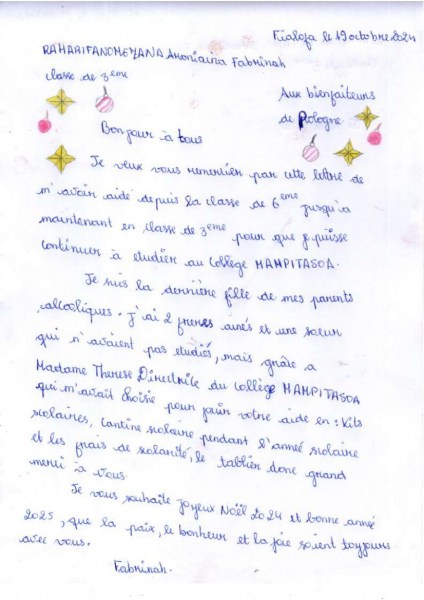 Fialofa le 19 octobre 2024
RAHARIFANOMEZANA Anoniaina Fabrinah
classe de 3eme
Aux bienfaiteurs
de Pologne
Bonjour à tous
Je veux vous remercier par cette lettre de
m'avoir aidé depuis la classe de 6eme jusqu'à
maintenant en classe de 3eme pour que je puisse
continuer à etudier au Collège MAMPITASOA.
Je suis la dernière fille de mes parents
alcooliques. J'ai 2 freres ainés et une sœur
qui n'avaient pas etudiés, mais grâce a
Madame Therese Directrice du Collège MAMPITASOA
qui m'avait choisie pour jouir votre aide en : Kits
scolaires, cantine scolaire pendant l'anneé scolaire
et les frais de scolarité, le tablier donc grand
merci à vous
Je vous souhaite joyeux Noël 2024 et bonne année
2025, que la paix, le bonheur et la joie soient toujours
avec vous.
Fabrinah.